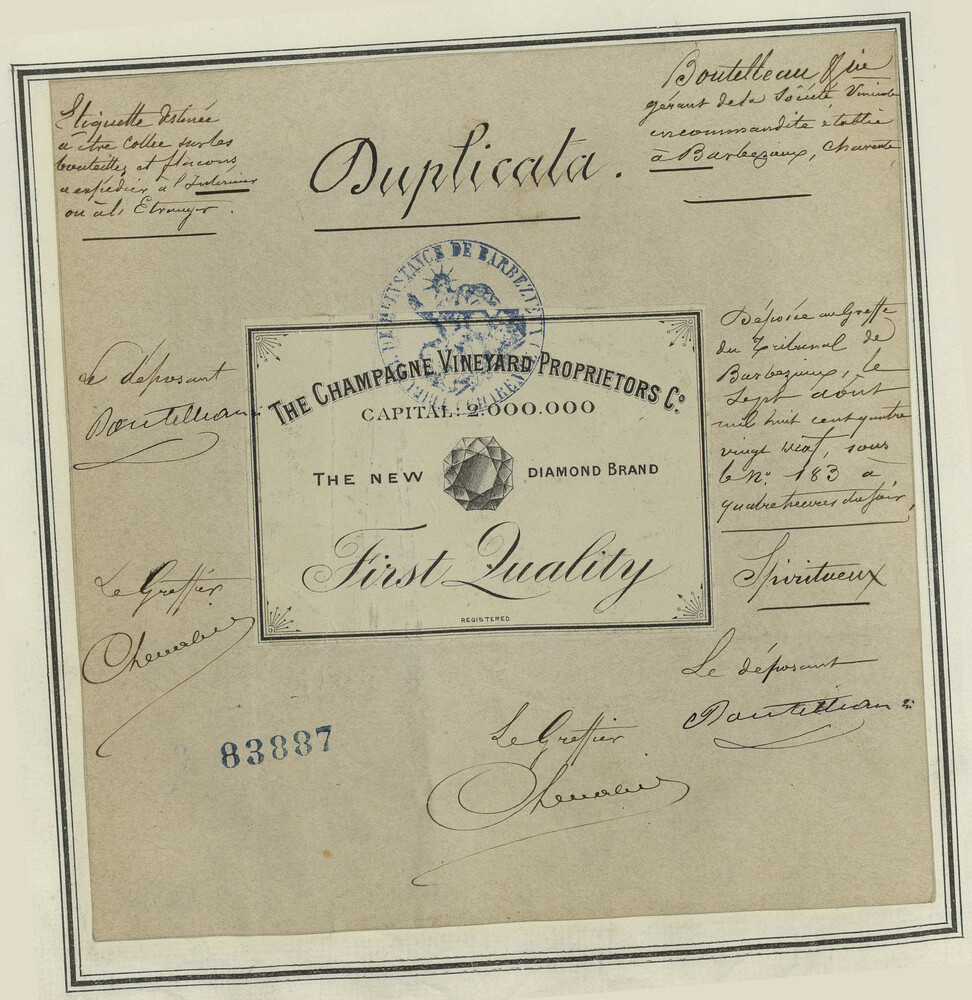 Etiquette destinée
à être collée sur les
bouteilles et flacons
à expédier à l'Intérieur
ou à l'Etranger.
Duplicata.
Boutelleau & Cie
gérant de la Société Vinicole
en commandite établie
à Barbezieux, Charente,
DE BARBEZIEUX
Le déposant
Boutelleau
THE CHAMPAGNE VINEYARD PROPRIETORS Co.
CAPITAL: 2.000.000
THE NEW DIAMOND BRAND
First Quality
REGISTERED
Déposée au Greffe
du Tribunal de
Barbezieux, le
Sept août
mil huit cent quatre
vingt sept, sous
le No. 183 à
quatre heures du soir,
Spiritueux
Le Greffier
Chevalier
Le déposant
Boutelleau
83887
Le Greffier
Chevalier